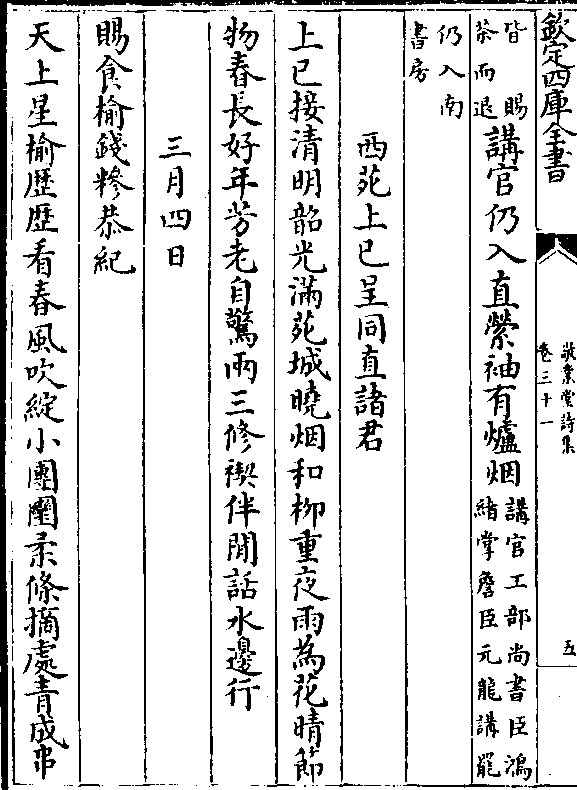 欽定四庫全書
敬業堂詩集
卷三十一
五
皆賜
茶而退
講官仍入直縈袖有爐烟
講官工部尚書臣鴻
緒掌詹臣元龍講罷
仍入南
書房
西苑上巳呈同直諸君
上巳接清明韶光滿苑城曉烟和柳重夜雨為花晴節
物春長好年芳老自驚兩三修禊伴閒話水邊行
三月四日
賜食榆錢糝恭紀
天上星榆歴歴看春風吹綻小團團柔條摘處青成串